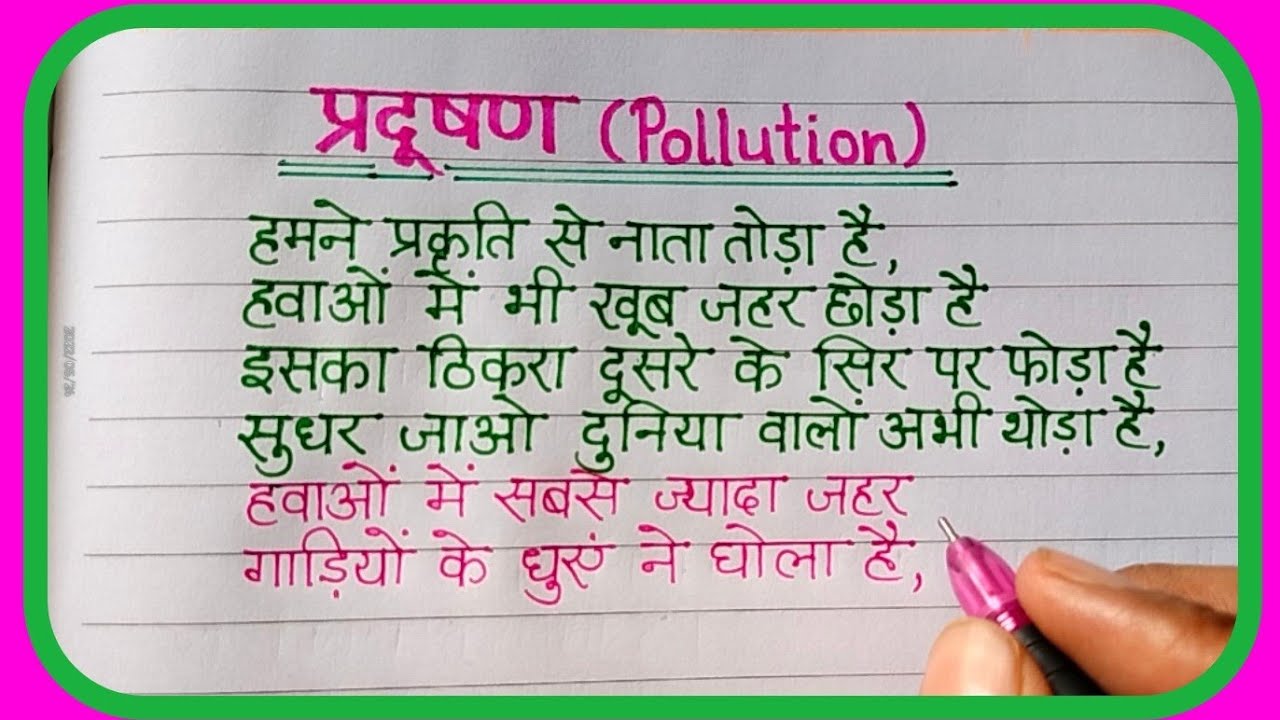 प्रदूषण (Pollution)
हमने प्रकृति से नाता तोड़ा है,
हवाओं में भी खूब जहर छोड़ा है
इसका ठिकरा दूसरे के सिर पर फोड़ा है
सुधर जाओ दुनिया वालों अभी थोड़ा है,
हवाओं में सबसे ज्यादा जहर
गाड़ियों के धुएं ने घोला है,